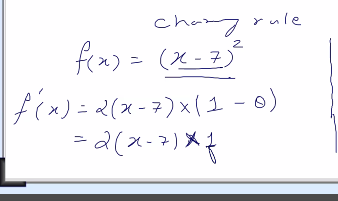 chang rule
f(x) = (x-7)²
f'(x) = 2(x-7)×(1-0)
= 2(x-7)×1